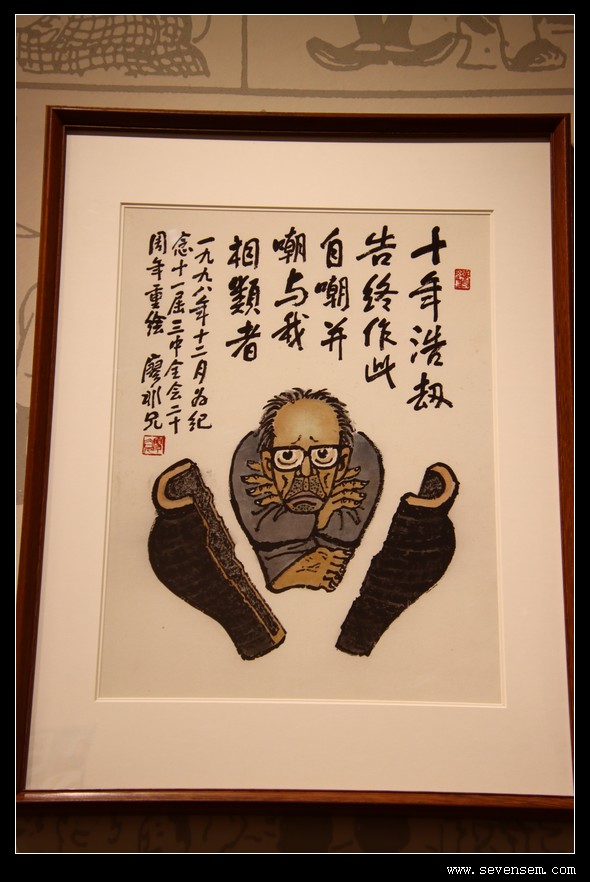 十年浩劫
告终作此
自嘲并
嘲与我
相类者
一九九八年十二月为纪
念十一届三中全会二十
周年重绘 廖冰兄
www.sevensem.com